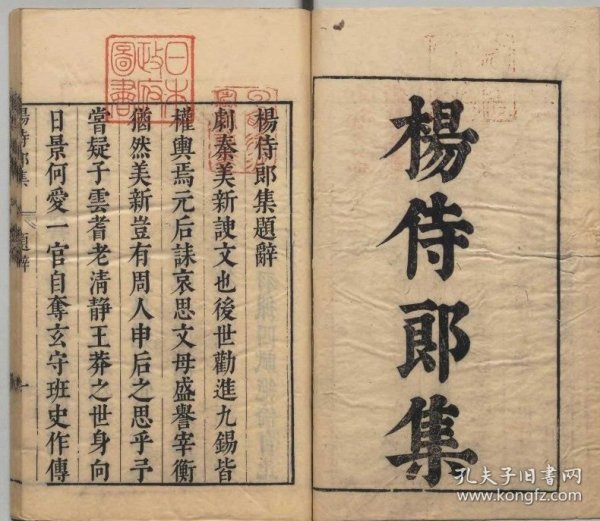 楊侍郎集
楊侍郎集題辭
劇秦美新諛文也後世勸進九錫皆
權輿焉元后誄哀思文母盛譽宰衡
猶然美新豈有周人申后之思乎予
嘗疑子雲耆老清静王莽之世身向
日景何愛一官自奪玄守班史作傳
楊侍郎集
題辭
一
日本
政府
圖書
孔夫子旧书网
www.kongfz.com